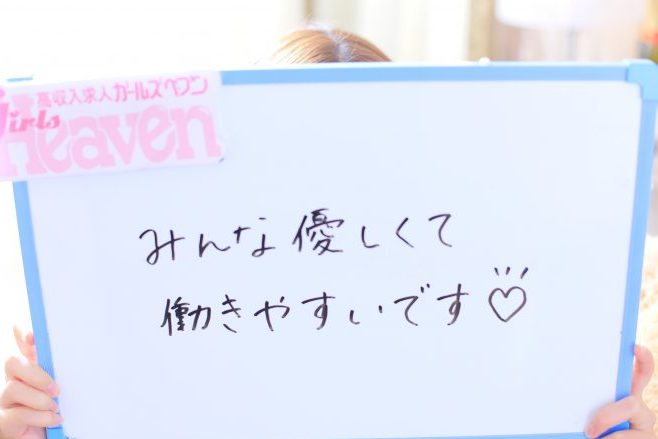 高収入求人ガールズヘブン
Girls
Heaven
みんな優しくて
働きやすいです♡